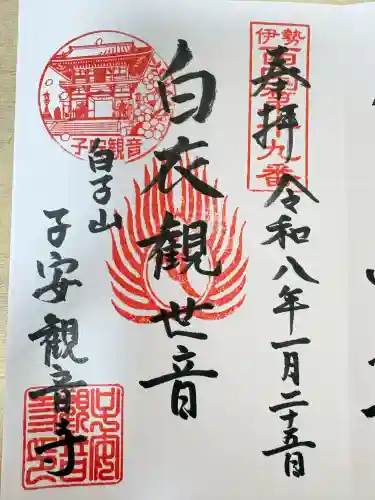 伊勢
奉拝
九番
令和八年一月二十五日
白衣觀世音
子安観音
白子山
子安観音寺